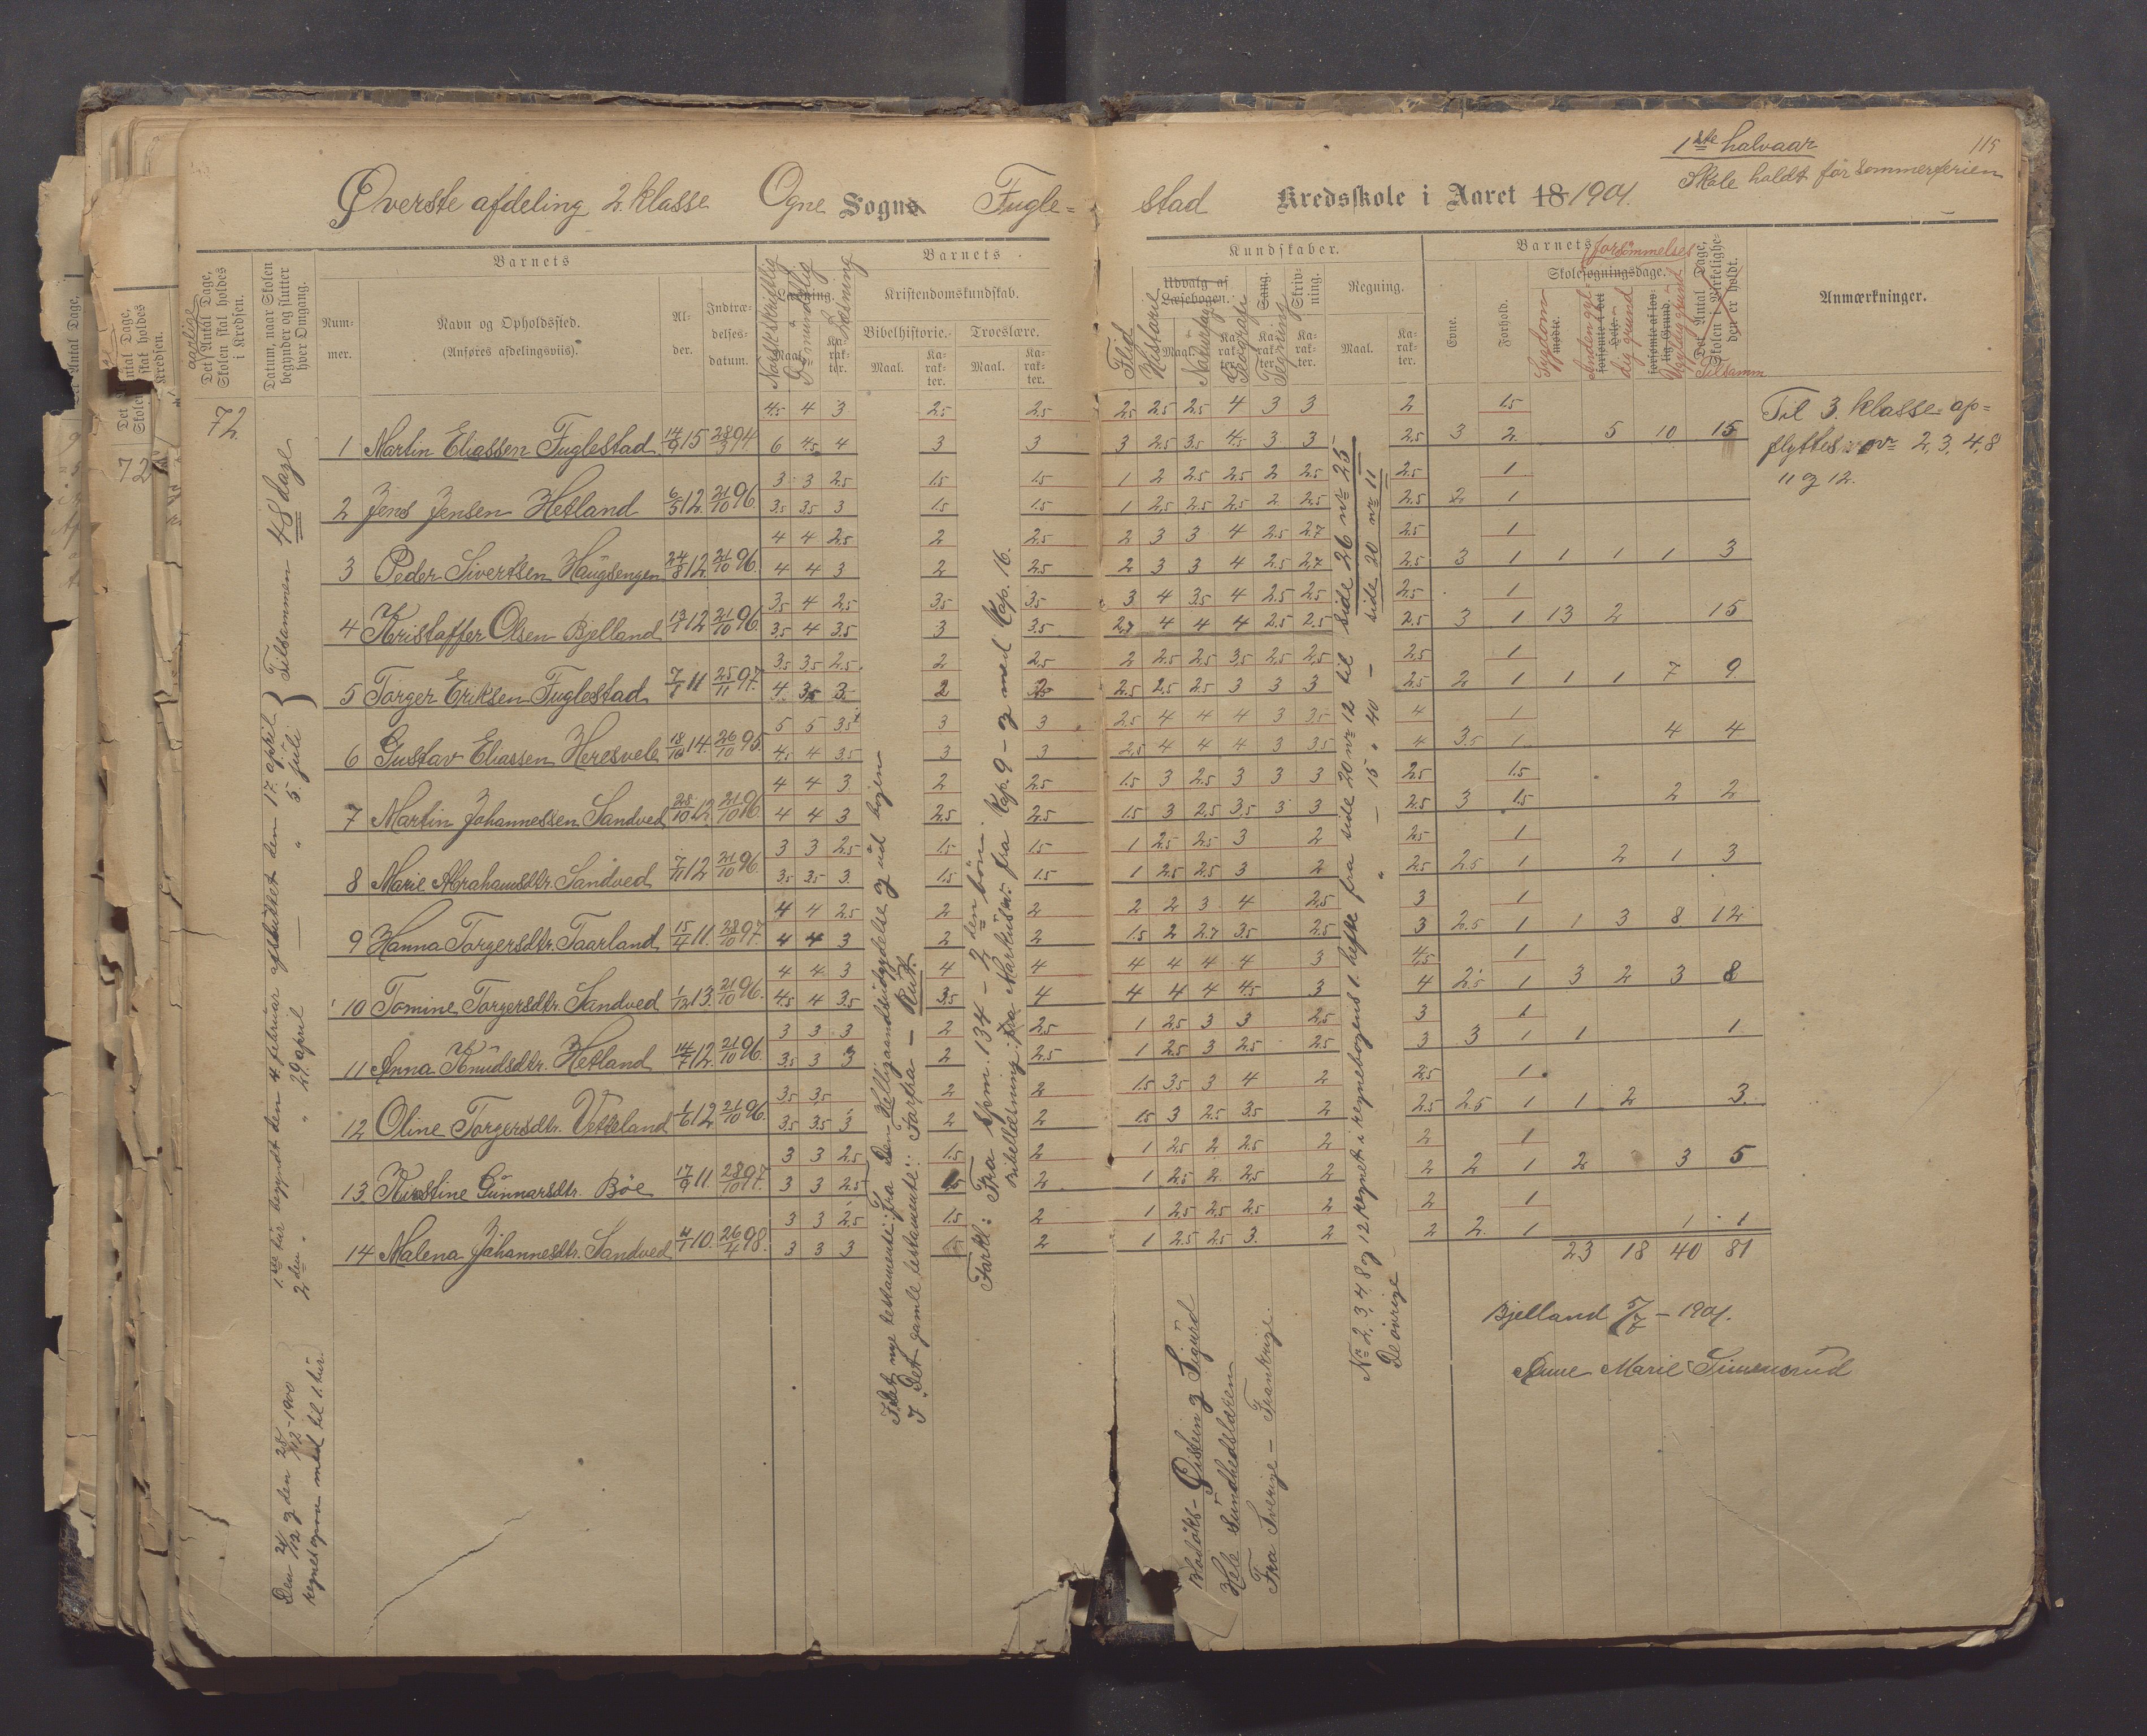 1ste halvaar
115
Skole holdt før sommerferien
Øverste afdeling 2. klasse Ogne Sogns Fugle=
stad Kredsskole i Aaret 18 1901.
aarlige
Det Antal Dage, Skolen skal holdes i Kredsen.
Datum, naar Skolen begynder og slutter hver Omgang.
Barnets
Num-mer.
Navn og Opholdssted.
(Anføres afdelingsviis).
Al-der.
Indtræ-delses-datum.
Læsning.
Norsk skriftlig
mundtlig
Læsning
Maal.
Ka-rak-ter.
Barnets
Kristendomskundskab.
Bibelhistorie.
Troeslære.
Maal.
Ka-rak-ter.
Maal.
Ka-rak-ter.
Kundskaber.
Udvalg af Læsebogen.
Flid
Historie
Maal.
Naturfag
Geografi
Ka-rak-ter.
Sang.
Tegning
Ka-rak-ter.
Skriv-ning.
Ka-rak-ter.
Regning.
Maal.
Ka-rak-ter.
Barnets forsømmelser
Evne.
Forhold.
Skolesøgningsdage.
Sygdom
mødte.
Anden gyl-
dig grund
forsømte i det Hele.
Ugyldig grund
forsømte af lov-lig Grund.
Det Antal Dage, Skolen i Virkelighe-den er holdt.
Tilsamm.
Anmærkninger.
72
4.5 4 3 2.5 2.5 2.5 2.5 2.5 4 3 3 2 1.5
1 Martin Eliassen Fuglestad 14/9 15 28/3 94 6 4.5 4 3 3 3 2.5 3.5 4.5 3 3 2.5 3 2 5 10 15
3 3 2.5 1.5 1.5 1 2 2.5 2.5 2 2.5 2.5 1
2 Jens Jensen Hetland 6/5 12 21/10 96 3.5 3.5 3 1.5 1.5 1 2.5 2.5 2.5 2 2.5 2.5 2 1
4 4 2.5 2 2.5 2 3 3 4 2.5 2.7 2.5 1
3 Peder Sivertsen Haugsengen 24/8 12 21/10 96 4 4 3 2 2.5 2 3 3 4 2.5 2.7 2.5 3 1 1 1 1 3
3.5 4 2.5 3.5 3.5 3 4 3.5 4 2.5 2.5 2.5 1
4 Kristoffer Olsen Bjelland 13/7 12 21/10 96 3.5 4 3.5 3 3.5 2.7 4 4 4 2.5 2.5 2.5 3 1 13 2 15
3.5 3.5 2.5 2 2.5 2 2.5 2.5 3.5 2.5 2.5 2.5 1
5 Torger Eriksen Fuglestad 7/8 11 25/11 97 4 3.5 3 2 2.5 2.5 2.5 2.5 3 3 3 2.5 2 1 1 1 7 9
5 5 3.5 3 3 2.5 4 4 4 3 3.5 4 1
6 Gustav Eliassen Heresvele 18/10 14 26/10 95 4.5 4 3.5 3 3 2.5 4 4 4 3 3.5 4 3.5 1 4 4
4 4 3 2 2.5 1.5 3 2.5 3 3 3 2.5 1.5
7 Martin Johannessen Sandved 28/10 12 21/10 96 4 4 3 2.5 2.5 1.5 3 2.5 3.5 3 3 2.5 3 1.5 2 2
3 3 2.5 1.5 1.5 1 2.5 2.5 3 2 2.5 1
8 Marie Abrahamsdtr. Sandved 7/11 12 21/10 96 3.5 3.5 3 1.5 1.5 1 2.5 2.5 3 2 2.5 2.5 1 2 1 3
4 4 2.5 2 2 2 2 3 4 2.5 3 1
9 Hanna Torgersdtr. Taarland 15/4 11 28/10 97 4 4 3 2 2 1.5 2 2.7 3.5 2.5 3 2.5 1 1 3 8 12
4 4 3 4 4 4 4 4 4 3 4.5 1
10 Tomine Torgersdtr. Sandved 1/12 13 21/10 96 4.5 4 3.5 3.5 4 4 4 4 4.5 3 4 2.5 1 3 2 3 8
3 3 3 2 2.5 1 2.5 3 3 2.5 3 1
11 Anna Knudsdtr. Hetland 14/7 12 21/10 96 3.5 3 3 2 2.5 1 2.5 3 2.5 2.5 3 3 1 1 1
3.5 3.5 2 2 1.5 3.5 3 4 2 2.5 1
12 Oline Torgersdtr. Vetteland 1/6 12 21/10 96 3.5 3.5 3 2 2 1.5 3 2.5 3.5 2 2.5 2.5 1 1 2 3
3 3 2.5 1.5 2 1 2.5 2 2.5 2 2 1
13 Kirstine Gunnarsdtr. Bøe 17/9 11 28/10 97 3 3 2.5 1.5 2 1 2.5 2 2.5 2 2 2 1 2 3 5
3 3 2.5 1.5 2 1 2.5 2.5 2.5 2 2 1
14 Malena Johannesdtr. Sandved 4/1 10 26/4 98 3 3 3 2 1 2.5 2.5 3 2 2 2 1 1 1
23 18 40 81
Til 3. klasse op=
flyttes nr 2, 3, 4, 8
11 og 12.
1ste tur begyndt den 4. februar afsluttet den 17. april
2den " — " 29. april — " — 5. juli
Tilsammen 48 dage
Den 21/12 og den 28/12 - 1900
regnes som med til 1. tur.
I det nye testamente: fra Den Helligaands udgydelse og ud bogen
I Det gamle testamente: Forfra — Rut.
Forkl: Fra Spm. 134 — 2den bøn.
Bibellæsning: fra Markus ev. fra Kap. 9 — og med Kap. 16.
Øistein og Sigurd
Hele Sundhedslæren
Fra Sverige — Frankrige.
Nr 2, 3, 4 8 og 12 regnet i regnebogens 1. hefte fra side 20 nr 12 til side 26 nr 25
De øvrige " — 15 " 40 — side 20 nr 11
Bjelland 5/7 — 1901.
Anne Marie Simensrud